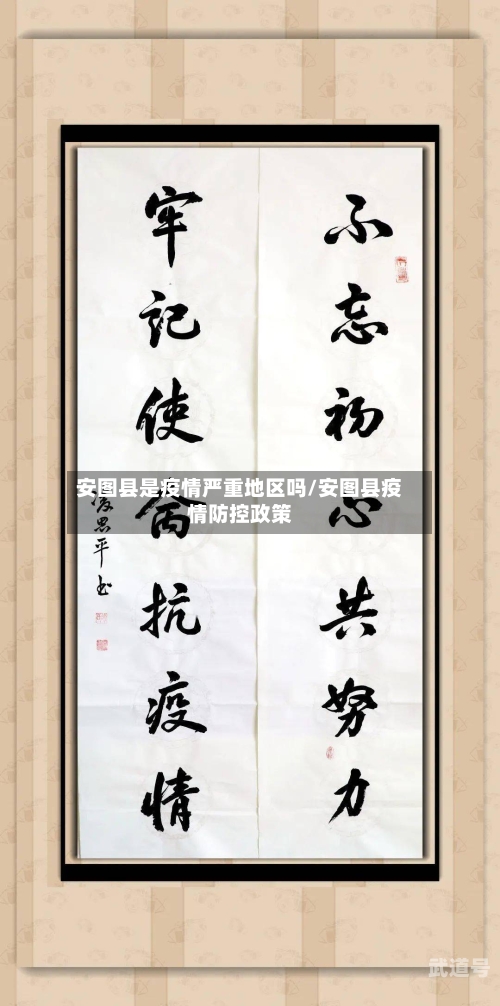 不忘初心共努力
牢记使命抗疫情
思平书
安图县是疫情严重地区吗/安图县疫
情防控政策
武道号